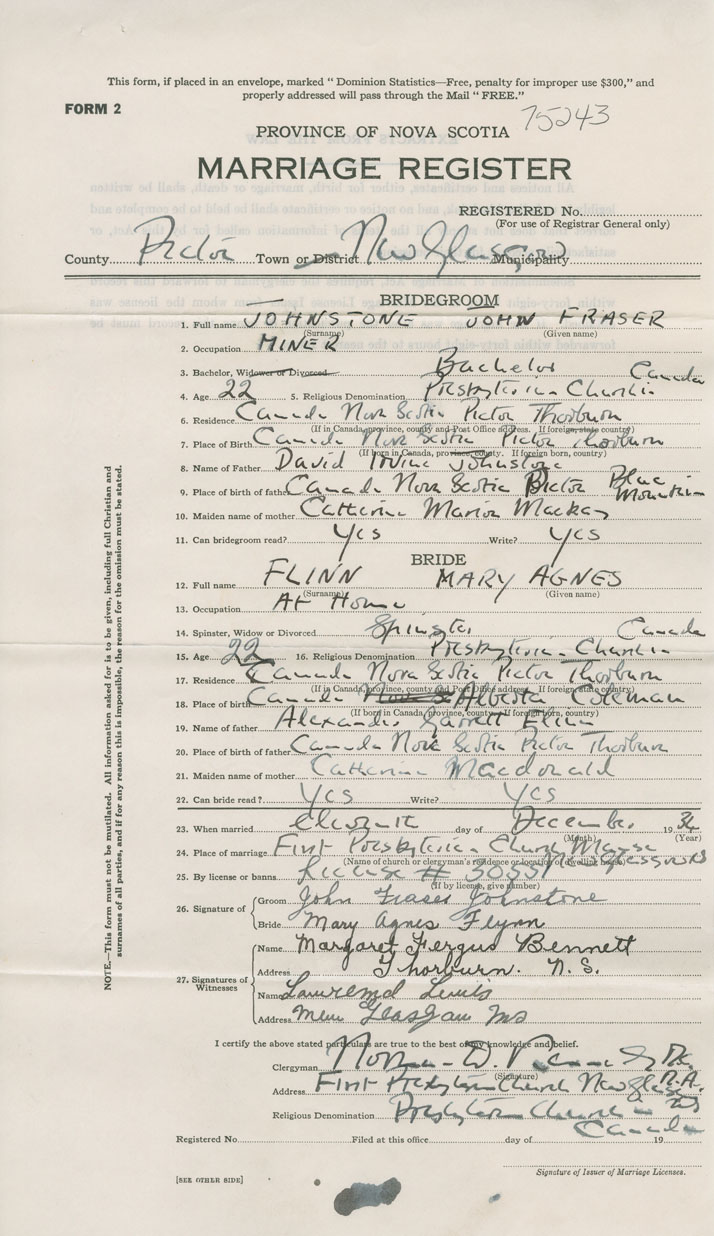 This form, if placed in an envelope, marked " Dominion Statistics—Free, penalty for improper use $300," and
properly addressed will pass through the Mail " FREE."
FORM 2
75243
PROVINCE OF NOVA SCOTIA
MARRIAGE REGISTER
REGISTERED No.
(For use of Registrar General only)
County Pictou Town or District New Glasgow Municipality
BRIDEGROOM
1. Full name JOHNSTONE JOHN FRASER
(Surname) (Given name)
2. Occupation MINER
3. Bachelor, Widower or Divorced Bachelor
Canada
4. Age 22 5. Religious Denomination Presbyterian Church in
6. Residence Canada Nova Scotia Pictou Thorburn
(If in Canada, province, county and Post Office address. If foreign, state country)
7. Place of Birth Canada Nova Scotia Pictou Thorburn
(If born in Canada, province, county. If foreign born, country)
8. Name of Father David Irvine Johnstone
9. Place of birth of father Canada Nova Scotia Pictou Blue Mountain
10. Maiden name of mother Catherine Marion Mackay
11. Can bridegroom read? Yes Write? Yes
BRIDE
12. Full name FLINN MARY AGNES
(Surname) (Given name)
13. Occupation At Home
14. Spinster, Widow or Divorced Spinster Canada
15. Age 22 16. Religious Denomination Presbyterian Church in
17. Residence Canada Nova Scotia Pictou Thorburn
(If in Canada, province, county and Post Office address. If foreign, state country)
18. Place of birth Canada Alberta Coleman
(If born in Canada, province, county. If foreign born, country)
19. Name of father Alexander Garrett Flinn
20. Place of birth of father Canada Nova Scotia Pictou Thorburn
21. Maiden name of mother Catherine Macdonald
22. Can bride read? Yes Write? Yes
23. When married eleventh day of December 1934
(Month) (Year)
24. Place of marriage First Presbyterian Church Manse
(Name of church or clergyman's residence or location of dwelling house)
25. By license or banns License #
(If by license, give number)
26. Signature of
Groom John Fraser Johnstone
Bride Mary Agnes Flynn
27. Signatures of Witnesses
Name Margaret Fergus Bennett
Address Thorburn. N. S.
Name Lewis
Address New Glasgow NS
I certify the above stated particulars are true to the best of my knowledge and belief.
Clergyman Norman D.
(Signature)
Address First Presbyterian Church New Glasgow
Religious Denomination Presbyterian Church in
Canada
Registered No. Filed at this office day of 19
Signature of Issuer of Marriage Licenses.
[SEE OTHER SIDE]
NOTE.—This form must not be mutilated. All information asked for is to be given, including full Christian and
surnames of all parties, and if for any reason this is impossible, the reason for the omission must be stated.